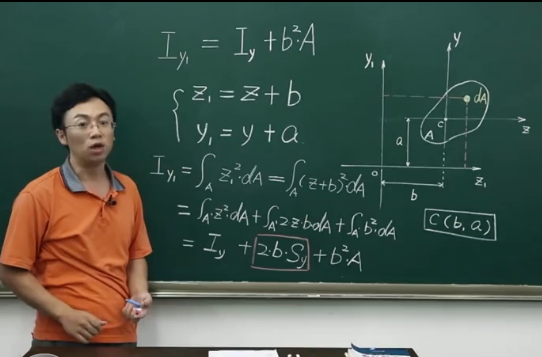 I_{y₁} = I_y + b²·A
{ z₁ = z + b
y₁ = y + a
I_{y₁} = ∫_A z₁²·dA = ∫_A (z+b)²·dA
= ∫_A·z²·dA + ∫_A·2z·b·dA + ∫_A·b²·dA
= I_y + 2·b·S_y + b²·A
y₁
y
dA
A
c
z
a
o
z₁
b
C(b, a)